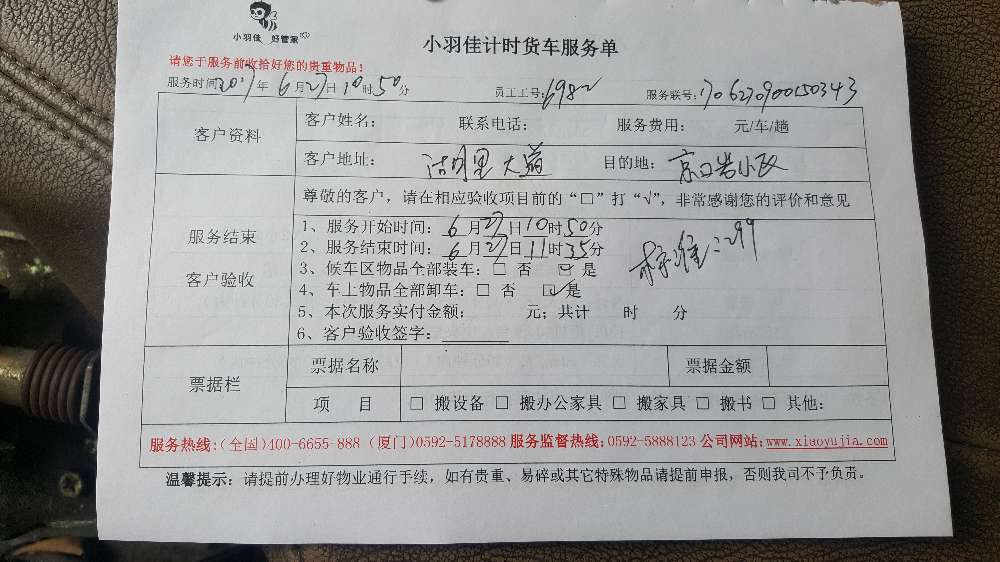 小羽佳 好管家
小羽佳计时货车服务单
请您于服务前收拾好您的贵重物品！
服务时间2017年6月27日10时50分 员工工号:6982 服务联号:
客户资料
客户姓名： 联系电话： 服务费用： 元/车/趟
客户地址： 湖里大道 目的地： 小区
服务结束
客户验收
尊敬的客户，请在相应验收项目前的“□”打“√”，非常感谢您的评价和意见
1、服务开始时间：6月27日10时50分
2、服务结束时间：6月27日11时35分
标准：299
3、候车区物品全部装车：□ 否 ☑ 是
4、车上物品全部卸车：□ 否 ☑是
5、本次服务实付金额： 元；共计 时 分
6、客户验收签字：
票据栏
票据名称 票据金额
项 目 □ 搬设备 □ 搬办公家具 □ 搬家具 □ 搬书 □ 其他:
服务热线:(全国)400-6655-888 (厦门)0592-5178888 服务监督热线:0592-5888123 公司网站:www.xiaoyujia.com
温馨提示：请提前办理好物业通行手续，如有贵重、易碎或其它特殊物品请提前申报，否则我司不予负责。